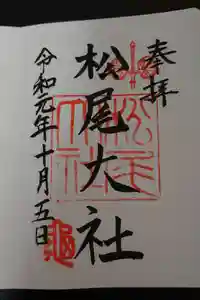 奉拝
松尾大社
令和元年十月五日
松尾大社